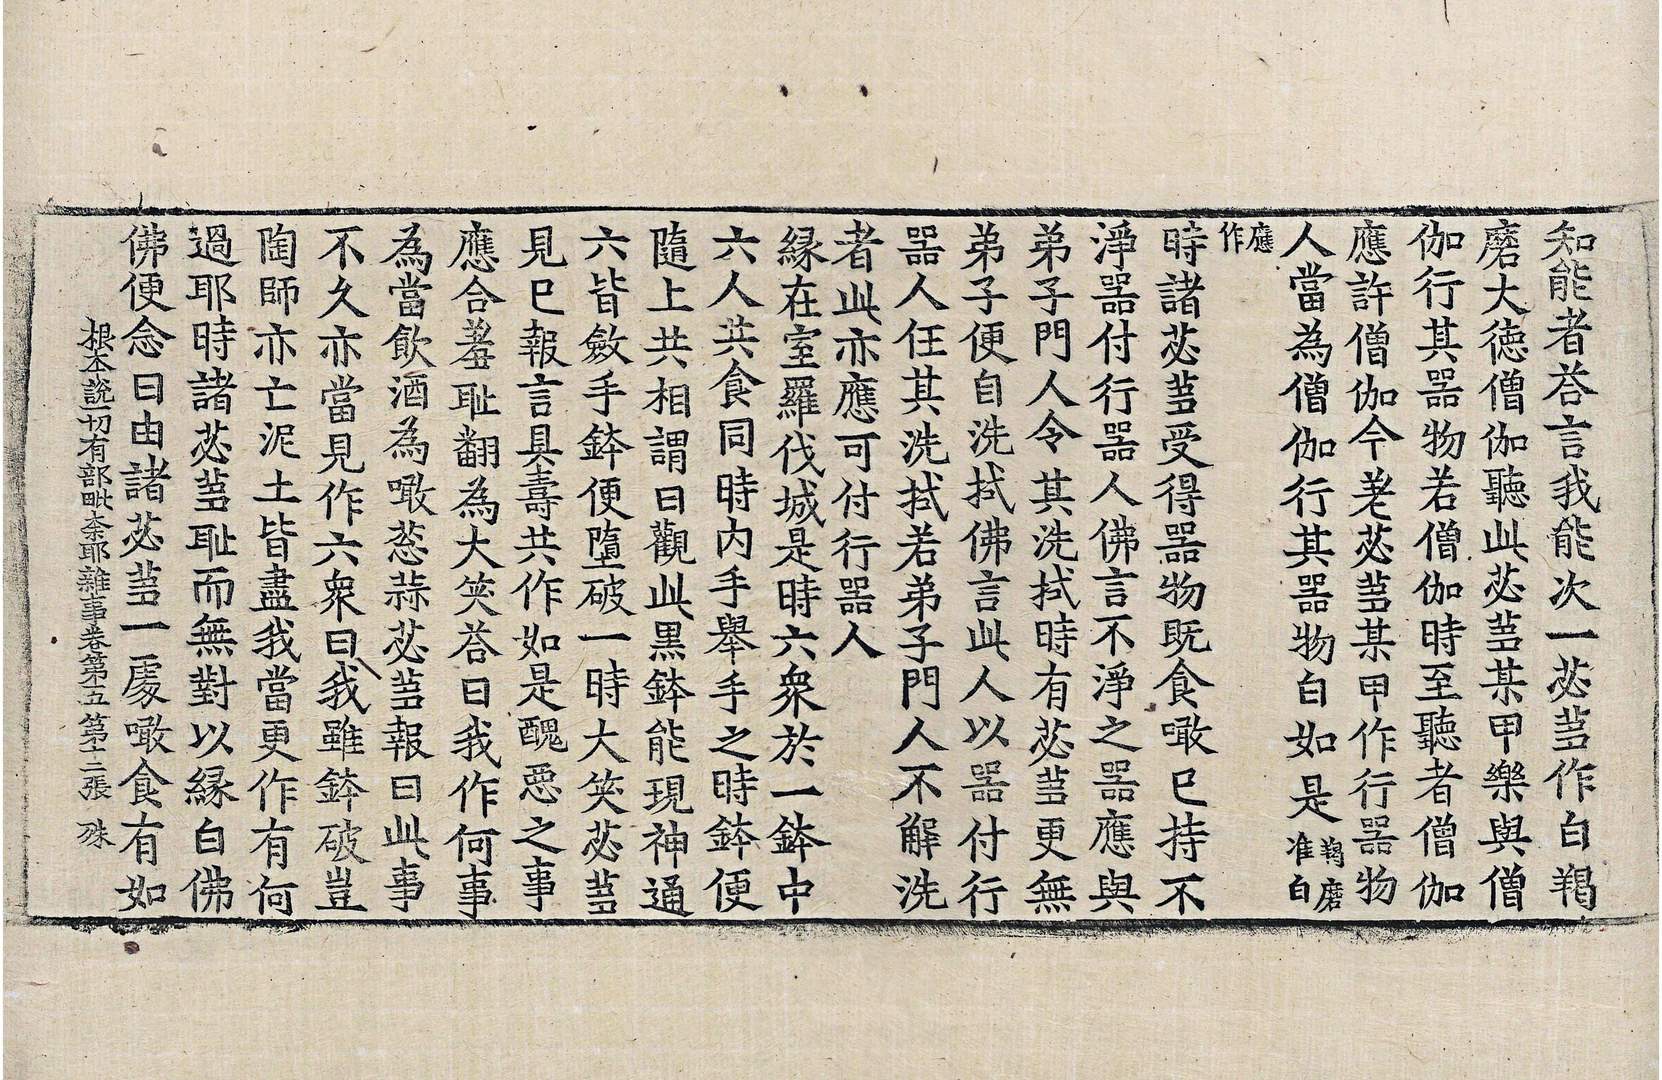 知能者荅言我能次一苾蒭作白羯
磨大徳僧伽聽此苾蒭某甲樂與僧
伽行其器物若僧伽時至聽者僧伽
應許僧伽今差苾蒭某甲作行器物
人當為僧伽行其器物白如是羯磨准白
應作
時諸苾蒭受得器物既食噉已持不
淨器付行器人佛言不淨之器應與
弟子門人令其洗拭時有苾蒭更無
弟子便自洗拭佛言此人以器付行
器人任其洗拭若弟子門人不解洗
者此亦應可付行器人
縁在室羅伐城是時六衆於一鉢中
六人共食同時內手舉手之時鉢便
隨上共相謂曰觀此黑鉢能現神通
六皆斂手鉢便墮破一時大笑苾蒭
見已報言具壽共作如是醜惡之事
應合羞耻翻為大笑荅曰我作何事
為當飲酒為噉葱蒜苾蒭報曰此事
不久亦當見作六衆曰我雖鉢破豈
陶師亦亡泥土皆盡我當更作有何
過耶時諸苾蒭耻而無對以縁白佛
佛便念曰由諸苾蒭一處噉食有如
根本說一切有部毗奈耶雜事卷第五 第十二張 殊